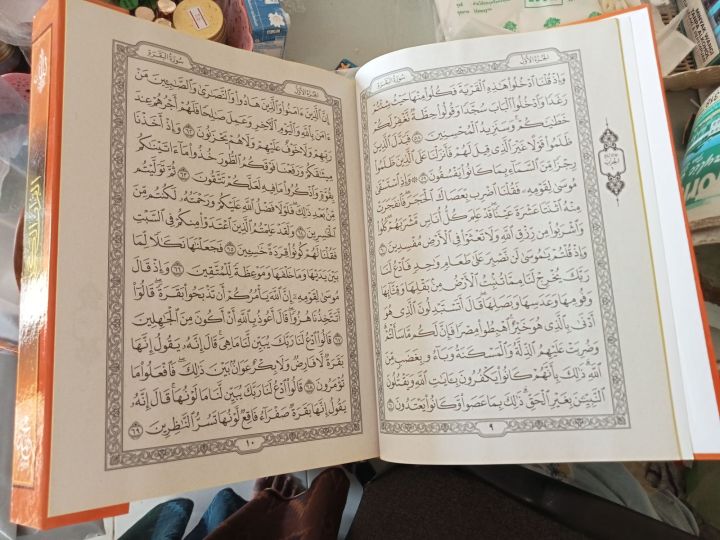 سُورَةُ البَقَرَةِ
الجُزْءُ الأَوَّلُ
وَإِذْ قُلْنَا ٱدْخُلُوا۟ هَـٰذِهِ ٱلْقَرْيَةَ فَكُلُوا۟ مِنْهَا حَيْثُ شِئْتُمْ
رَغَدًا وَٱدْخُلُوا۟ ٱلْبَابَ سُجَّدًا وَقُولُوا۟ حِطَّةٌ نَّغْفِرْ لَكُمْ
خَطَـٰيَـٰكُمْ ۚ وَسَنَزِيدُ ٱلْمُحْسِنِينَ ٥٨ فَبَدَّلَ ٱلَّذِينَ
ظَلَمُوا۟ قَوْلًا غَيْرَ ٱلَّذِى قِيلَ لَهُمْ فَأَنزَلْنَا عَلَى ٱلَّذِينَ ظَلَمُوا۟
رِجْزًا مِّنَ ٱلسَّمَآءِ بِمَا كَانُوا۟ يَفْسُقُونَ ٥٩ ۞ وَإِذِ ٱسْتَسْقَىٰ
مُوسَىٰ لِقَوْمِهِۦ فَقُلْنَا ٱضْرِب بِّعَصَاكَ ٱلْحَجَرَ ۖ فَٱنفَجَرَتْ
مِنْهُ ٱثْنَتَا عَشْرَةَ عَيْنًا ۖ قَدْ عَلِمَ كُلُّ أُنَاسٍ مَّشْرَبَهُمْ ۖ كُلُوا۟
وَٱشْرَبُوا۟ مِن رِّزْقِ ٱللَّهِ وَلَا تَعْثَوْا۟ فِى ٱلْأَرْضِ مُفْسِدِينَ ٦٠
وَإِذْ قُلْتُمْ يَـٰمُوسَىٰ لَن نَّصْبِرَ عَلَىٰ طَعَامٍ وَٰحِدٍ فَٱدْعُ لَنَا
رَبَّكَ يُخْرِجْ لَنَا مِمَّا تُنۢبِتُ ٱلْأَرْضُ مِنۢ بَقْلِهَا وَقِثَّآئِهَا
وَفُومِهَا وَعَدَسِهَا وَبَصَلِهَا ۖ قَالَ أَتَسْتَبْدِلُونَ ٱلَّذِى هُوَ
أَدْنَىٰ بِٱلَّذِى هُوَ خَيْرٌ ۚ ٱهْبِطُوا۟ مِصْرًا فَإِنَّ لَكُم مَّا سَأَلْتُمْ ۗ
وَضُرِبَتْ عَلَيْهِمُ ٱلذِّلَّةُ وَٱلْمَسْكَنَةُ وَبَآءُو بِغَضَبٍ مِّنَ
ٱللَّهِ ۗ ذَٰلِكَ بِأَنَّهُمْ كَانُوا۟ يَكْفُرُونَ بِـَٔايَـٰتِ ٱللَّهِ وَيَقْتُلُونَ
ٱلنَّبِيِّـۧنَ بِغَيْرِ ٱلْحَقِّ ۗ ذَٰلِكَ بِمَا عَصَوا۟ وَّكَانُوا۟ يَعْتَدُونَ ٦١
٩
الجُزْءُ الأَوَّلُ
سُورَةُ البَقَرَةِ
إِنَّ ٱلَّذِينَ ءَامَنُوا۟ وَٱلَّذِينَ هَادُوا۟ وَٱلنَّصَـٰرَىٰ وَٱلصَّـٰبِـِٔينَ مَنْ
ءَامَنَ بِٱللَّهِ وَٱلْيَوْمِ ٱلْـَٔاخِرِ وَعَمِلَ صَـٰلِحًا فَلَهُمْ أَجْرُهُمْ عِندَ
رَبِّهِمْ وَلَا خَوْفٌ عَلَيْهِمْ وَلَا هُمْ يَحْزَنُونَ ٦٢ وَإِذْ أَخَذْنَا
مِيثَـٰقَكُمْ وَرَفَعْنَا فَوْقَكُمُ ٱلطُّورَ خُذُوا۟ مَآ ءَاتَيْنَـٰكُم
بِقُوَّةٍ وَٱذْكُرُوا۟ مَا فِيهِ لَعَلَّكُمْ تَتَّقُونَ ٦٣ ثُمَّ تَوَلَّيْتُم
مِّنۢ بَعْدِ ذَٰلِكَ ۖ فَلَوْلَا فَضْلُ ٱللَّهِ عَلَيْكُمْ وَرَحْمَتُهُۥ لَكُنتُم مِّنَ
ٱلْخَـٰسِرِينَ ٦٤ وَلَقَدْ عَلِمْتُمُ ٱلَّذِينَ ٱعْتَدَوْا۟ مِنكُمْ فِى ٱلسَّبْتِ
فَقُلْنَا لَهُمْ كُونُوا۟ قِرَدَةً خَـٰسِـِٔينَ ٦٥ فَجَعَلْنَـٰهَا نَكَـٰلًا لِّمَا
بَيْنَ يَدَيْهَا وَمَا خَلْفَهَا وَمَوْعِظَةً لِّلْمُتَّقِينَ ٦٦ وَإِذْ قَالَ
مُوسَىٰ لِقَوْمِهِۦٓ إِنَّ ٱللَّهَ يَأْمُرُكُمْ أَن تَذْبَحُوا۟ بَقَرَةً ۖ قَالُوٓا۟
أَتَتَّخِذُنَا هُزُوًا ۖ قَالَ أَعُوذُ بِٱللَّهِ أَنْ أَكُونَ مِنَ ٱلْجَـٰهِلِينَ
٦٧ قَالُوا۟ ٱدْعُ لَنَا رَبَّكَ يُبَيِّن لَّنَا مَا هِىَ ۚ قَالَ إِنَّهُۥ يَقُولُ إِنَّهَا
بَقَرَةٌ لَّا فَارِضٌ وَلَا بِكْرٌ عَوَانٌۢ بَيْنَ ذَٰلِكَ ۖ فَٱفْعَلُوا۟ مَا
تُؤْمَرُونَ ٦٨ قَالُوا۟ ٱدْعُ لَنَا رَبَّكَ يُبَيِّن لَّنَا مَا لَوْنُهَا ۚ قَالَ إِنَّهُۥ
يَقُولُ إِنَّهَا بَقَرَةٌ صَفْرَآءُ فَاقِعٌ لَّوْنُهَا تَسُرُّ ٱلنَّـٰظِرِينَ ٦٩
١٠